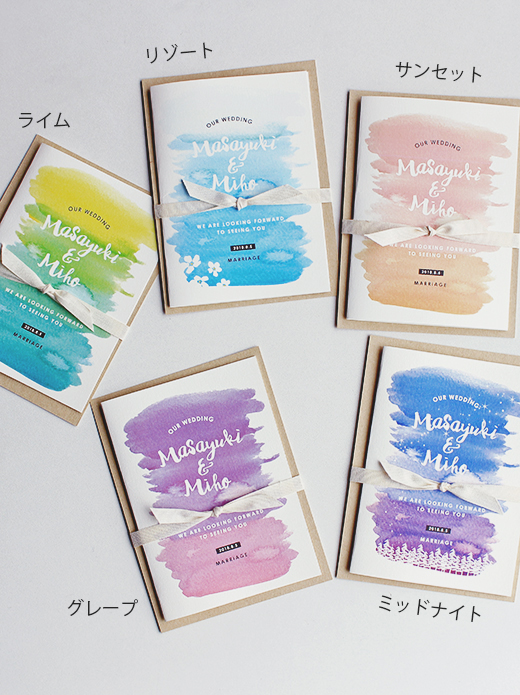 リゾート
サンセット
ライム
OUR WEDDING
Masayuki
&
Miho
WE ARE LOOKING FORWARD
TO SEEING YOU
MARRIAGE
OUR WEDDING
Masayuki
&
Miho
WE ARE LOOKING FORWARD
TO SEEING YOU
2018.8.8
MARRIAGE
OUR WEDDING
Masayuki
&
Miho
WE ARE LOOKING FORWARD
TO SEEING YOU
2018.8.8
MARRIAGE
OUR WEDDING
Masayuki
&
Miho
WE ARE LOOKING FORWARD
TO SEEING YOU
2018.8.8
MARRIAGE
OUR WEDDING
Masayuki
&
Miho
WE ARE LOOKING FORWARD
TO SEEING YOU
2018.8.8
MARRIAGE
グレープ
ミッドナイト